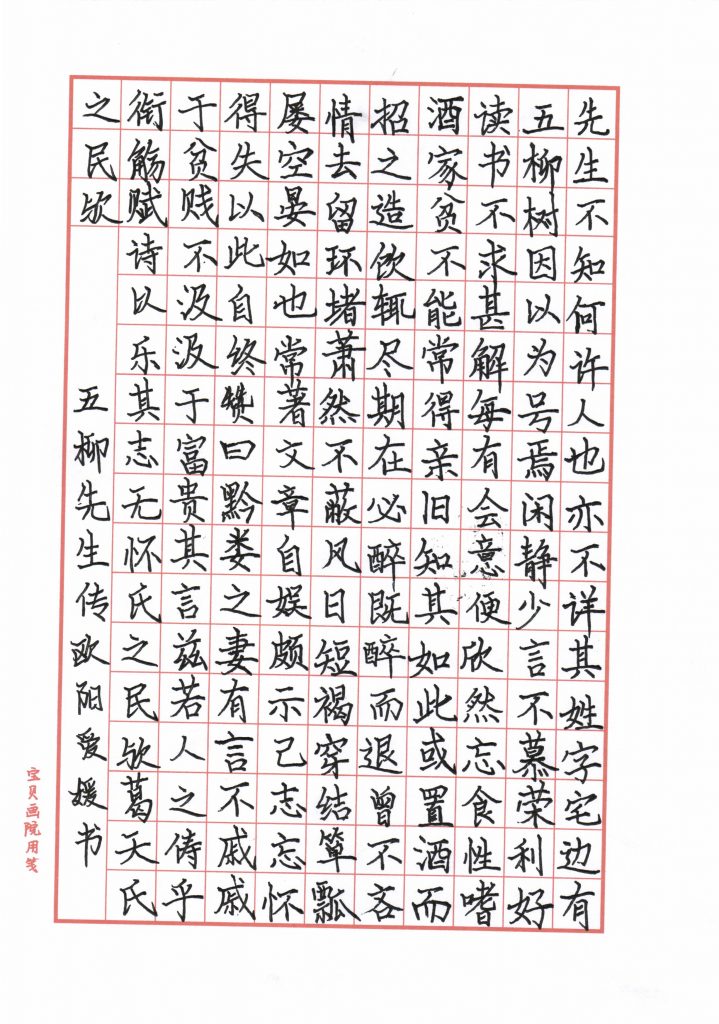 先生不知何许人也亦不详其姓字宅边有
五柳树因以为号焉闲静少言不慕荣利好
读书不求甚解每有会意便欣然忘食性嗜
酒家贫不能常得亲旧知其如此或置酒而
招之造饮辄尽期在必醉既醉而退曾不吝
情去留环堵萧然不蔽风日短褐穿结箪瓢
屡空晏如也常著文章自娱颇示己志忘怀
得失以此自终赞曰黔娄之妻有言不戚戚
于贫贱不汲汲于富贵其言兹若人之俦乎
衔觞赋诗以乐其志无怀氏之民欤葛天氏
之民欤
五柳先生传欧阳爱媛书
宝贝画院用笺